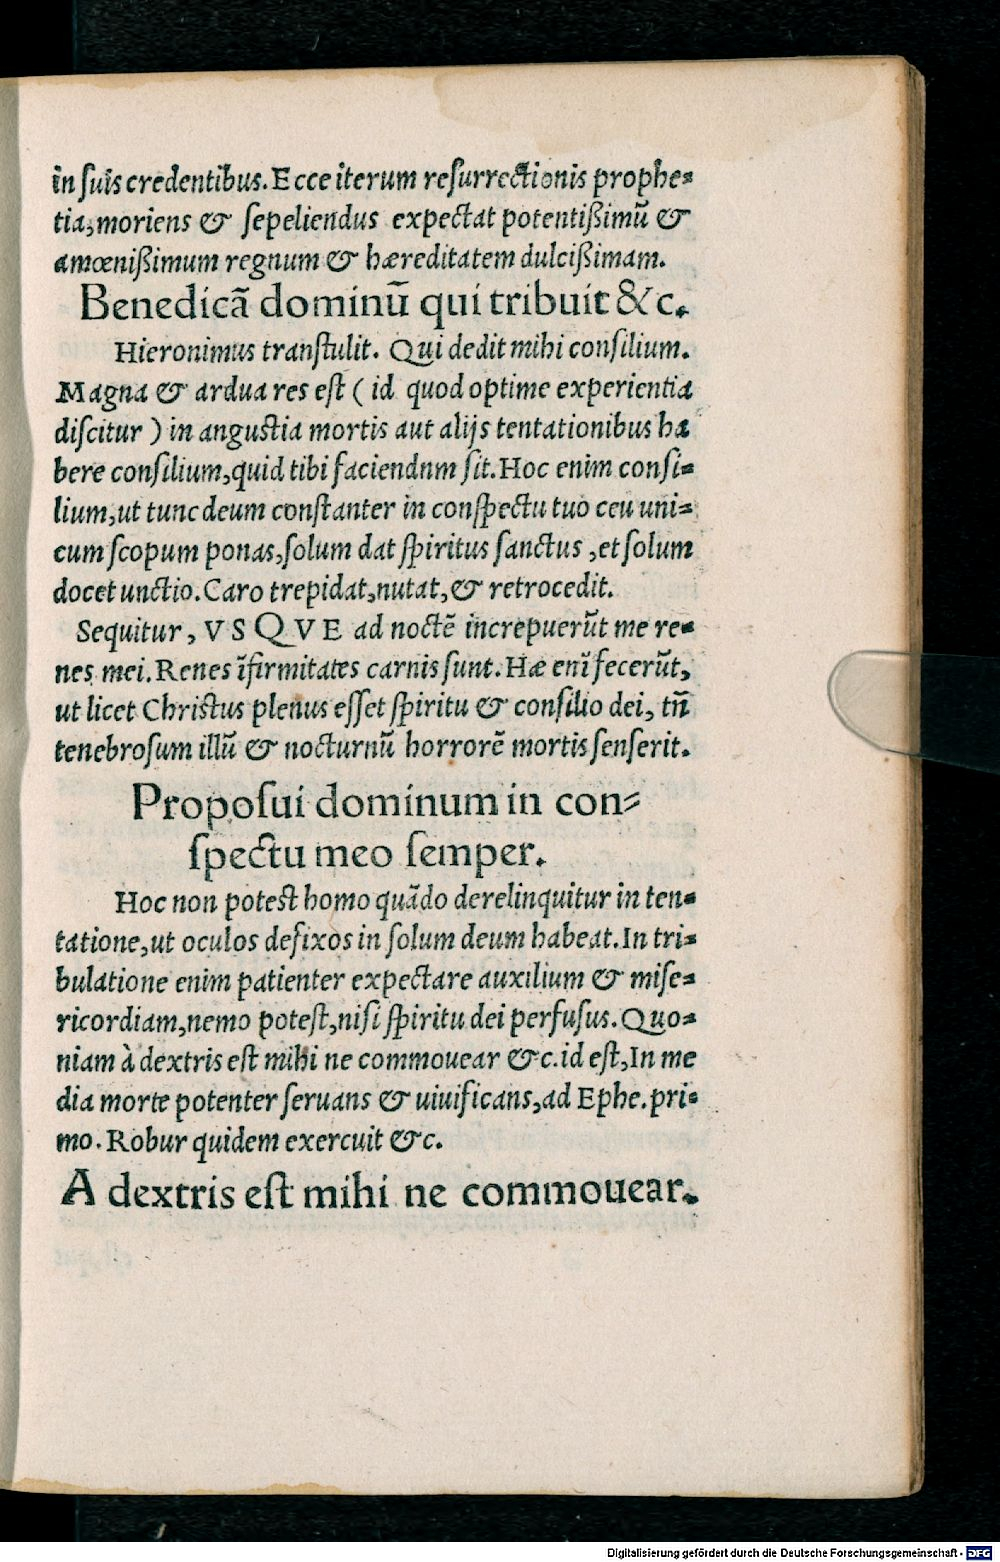 in ſuis credentibus. Ecce iterum reſurrectionis prophe⸗
tia, moriens & ſepeliendus expectat potentißimũ &
amœnißimum regnum & hæreditatem dulcißimam.
Benedicã dominũ qui tribuit &c.
Hieronimus tranſtulit. Qui dedit mihi conſilium.
Magna & ardua res eſt ( id quod optime experientia
diſcitur ) in anguſtia mortis aut alijs tentationibus ha
bere conſilium, quid tibi faciendnm ſit. Hoc enim conſi⸗
lium, ut tunc deum conſtanter in conſpectu tuo ceu uni⸗
cum ſcopum ponas, ſolum dat ſpiritus ſanctus , et ſolum
docet unctio. Caro trepidat, nutat, & retrocedit.
Sequitur, V S Q V E ad noctẽ increpuerũt me re⸗
nes mei. Renes ĩfirmitates carnis ſunt. Hæ enĩ fecerũt,
ut licet Chriſtus plenus eſſet ſpiritu & conſilio dei, tñ
tenebroſum illũ & nocturnũ horrorẽ mortis ſenſerit.
Propoſui dominum in con⸗
ſpectu meo ſemper.
Hoc non poteſt homo quãdo derelinquitur in ten⸗
tatione, ut oculos defixos in ſolum deum habeat. In tri⸗
bulatione enim patienter expectare auxilium & miſe⸗
ricordiam, nemo poteſt, niſi ſpiritu dei perfuſus. Quo⸗
niam à dextris eſt mihi ne commouear &c. id eſt, In me
dia morte potenter ſeruans & uiuificans, ad Ephe. pri⸗
mo. Robur quidem exercuit &c.
A dextris eſt mihi ne commouear.
Digitalisierung gefördert durch die Deutsche Forschungsgemeinschaft - DFG